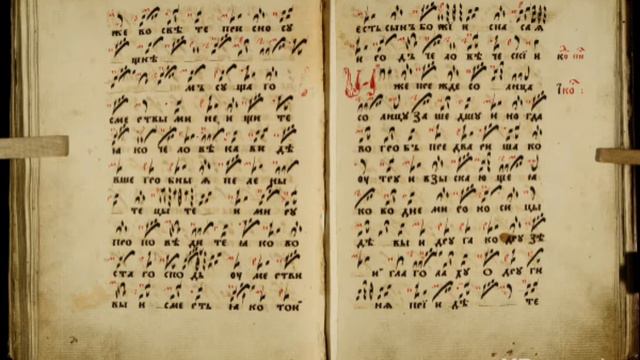 же во свѣ те при сно су
щнѣ
мъ су ща го
сме ртвы ми не и щи те
ꙗ ко че ло вѣ ка ви дѣ
вше гро бны ѧ пе ле ны
те цы те и ми ру
про по вѣ ди те ꙗ ко во
ста го спо дь оу ме ртви
вы и сме рть ꙗ ко той
есть сынъ бо жі и спа са ѧ
и ро дъ че ло вѣ че скі и
же пре жде со лнца
со лнцу за ше дшу и но гда
во гро бъ пре два ри ша ко
оу тру и взы ска ю ще ꙗ
ко во дне ми ро но си цы
дѣ вы и дру га ко дру зѣ
и гла го ла ху о дру ги
нѧ прі и дѣ те